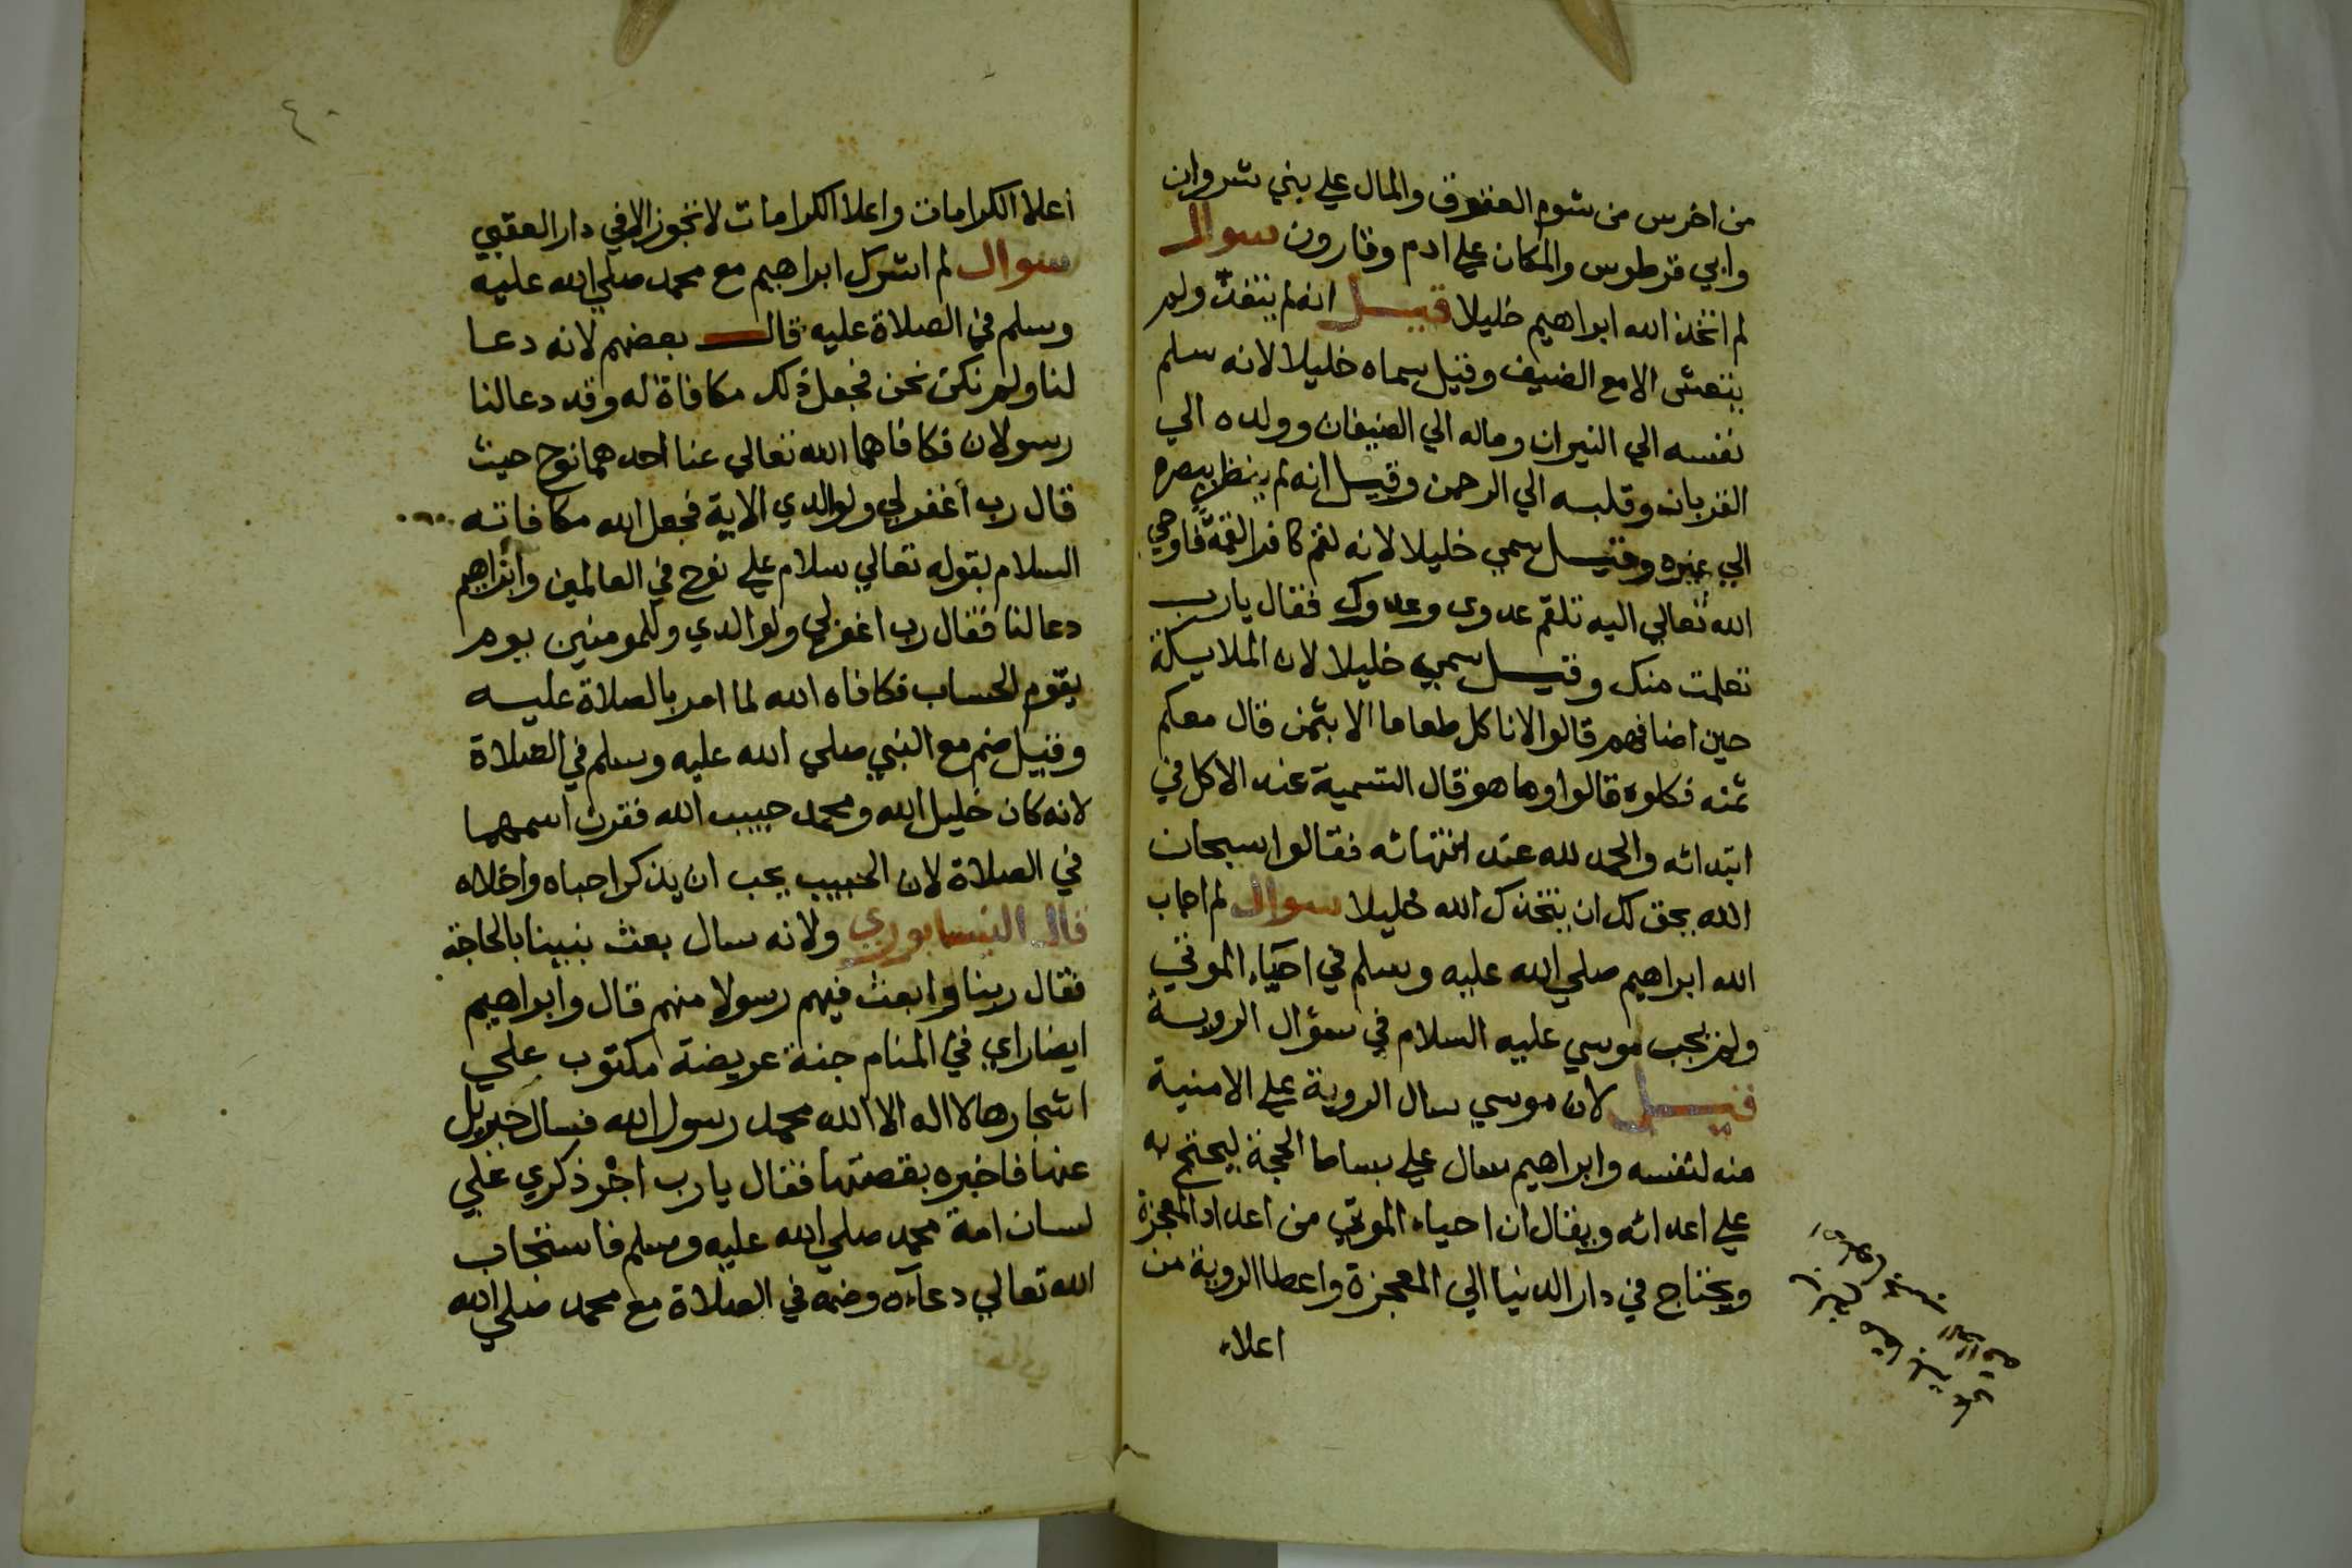 من اخرس من شوم العقوق والمال علي بني شروان
وابي قرطوس والمكان علي ادم وقارون سوال
لم اتخذ الله ابراهيم خليلا قيل انه لم يتغد ولم
يتعشى الا مع الضيف وقيل سماه خليلا لانه سلم
نفسه الي النيران وماله الي الضيفان وولده الي
القربان وقلبه الي الرحمن وقيل انه لم ينظر ببصره
الي غيره وقيل سمي خليلا لانه لقم كافرا لقمة فاوحي
الله تعالي اليه تلقم عدوي وعدوك فقال يارب
تعلمت منك وقيل سمي خليلا لان الملايكة
حين اضافهم قالوا لا ناكل طعاما الا بثمن قال معكم
ثمنه فكلوه قالوا وما هو قال التسمية عند الاكل في
ابتدائه والحمد لله عند انتهائه فقالوا سبحان
الله بحق لك ان يتخذك الله خليلا سوال لم اجاب
الله ابراهيم صلي الله عليه وسلم في احياء الموتي
ولم يجب موسي عليه السلام في سؤال الروية
قيل لان موسي سال الروية علي الامنية
منه لنفسه وابراهيم سال علي الحجة ليحتج به
علي اعدائه ويقال ان احياء الموتي من اعداد المعجزة
ويحتاج في دار الدنيا الي المعجزة واعطا الروية من
اعلاء
٤٠
أعلا الكرامات واعلا الكرامات لا تجوز الا في دار العقبي
سوال لم اشرك ابراهيم مع محمد صلي الله عليه
وسلم في الصلاة عليه قال بعضهم لانه دعا
لنا ولم نكن نحن فجعل ذلك مكافاة له وقد دعا لنا
رسولان فكافاهما الله تعالي عنا احدهما نوح حيث
قال رب أغفر لي ولوالدي الاية فجعل الله مكافاته
السلام بقوله تعالي سلام علي نوح في العالمين وابراهيم
دعا لنا فقال رب اغفر لي ولوالدي وللمومنين يوم
يقوم الحساب فكافاه الله لما امر بالصلاة عليه
وقيل ضم مع النبي صلي الله عليه وسلم في الصلاة
لانه كان خليل الله ومحمد حبيب الله فقرن اسمهما
في الصلاة لان الحبيب يحب ان يذكر احباه واخلاه
قال النيسابوري ولانه سال بعث نبينا بالحاجة
فقال ربنا وابعث فيهم رسولا منهم قال وابراهيم
ايضا راي في المنام جنة عريضة مكتوب علي
اشجارها لا اله الا الله محمد رسول الله فسال جبريل
عنها فاخبره بقصتها فقال يارب اجر ذكري علي
لسان امة محمد صلي الله عليه وسلم فاستجاب
الله تعالي دعاءه وضمه في الصلاة مع محمد صلي الله